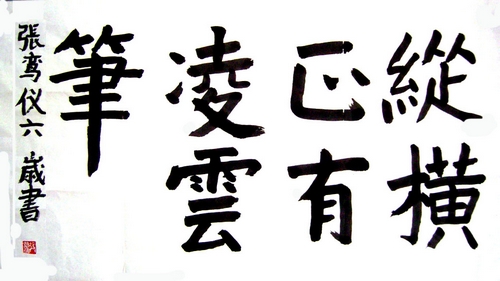 縱橫
正有
凌雲
筆
張鸾仪六歳書